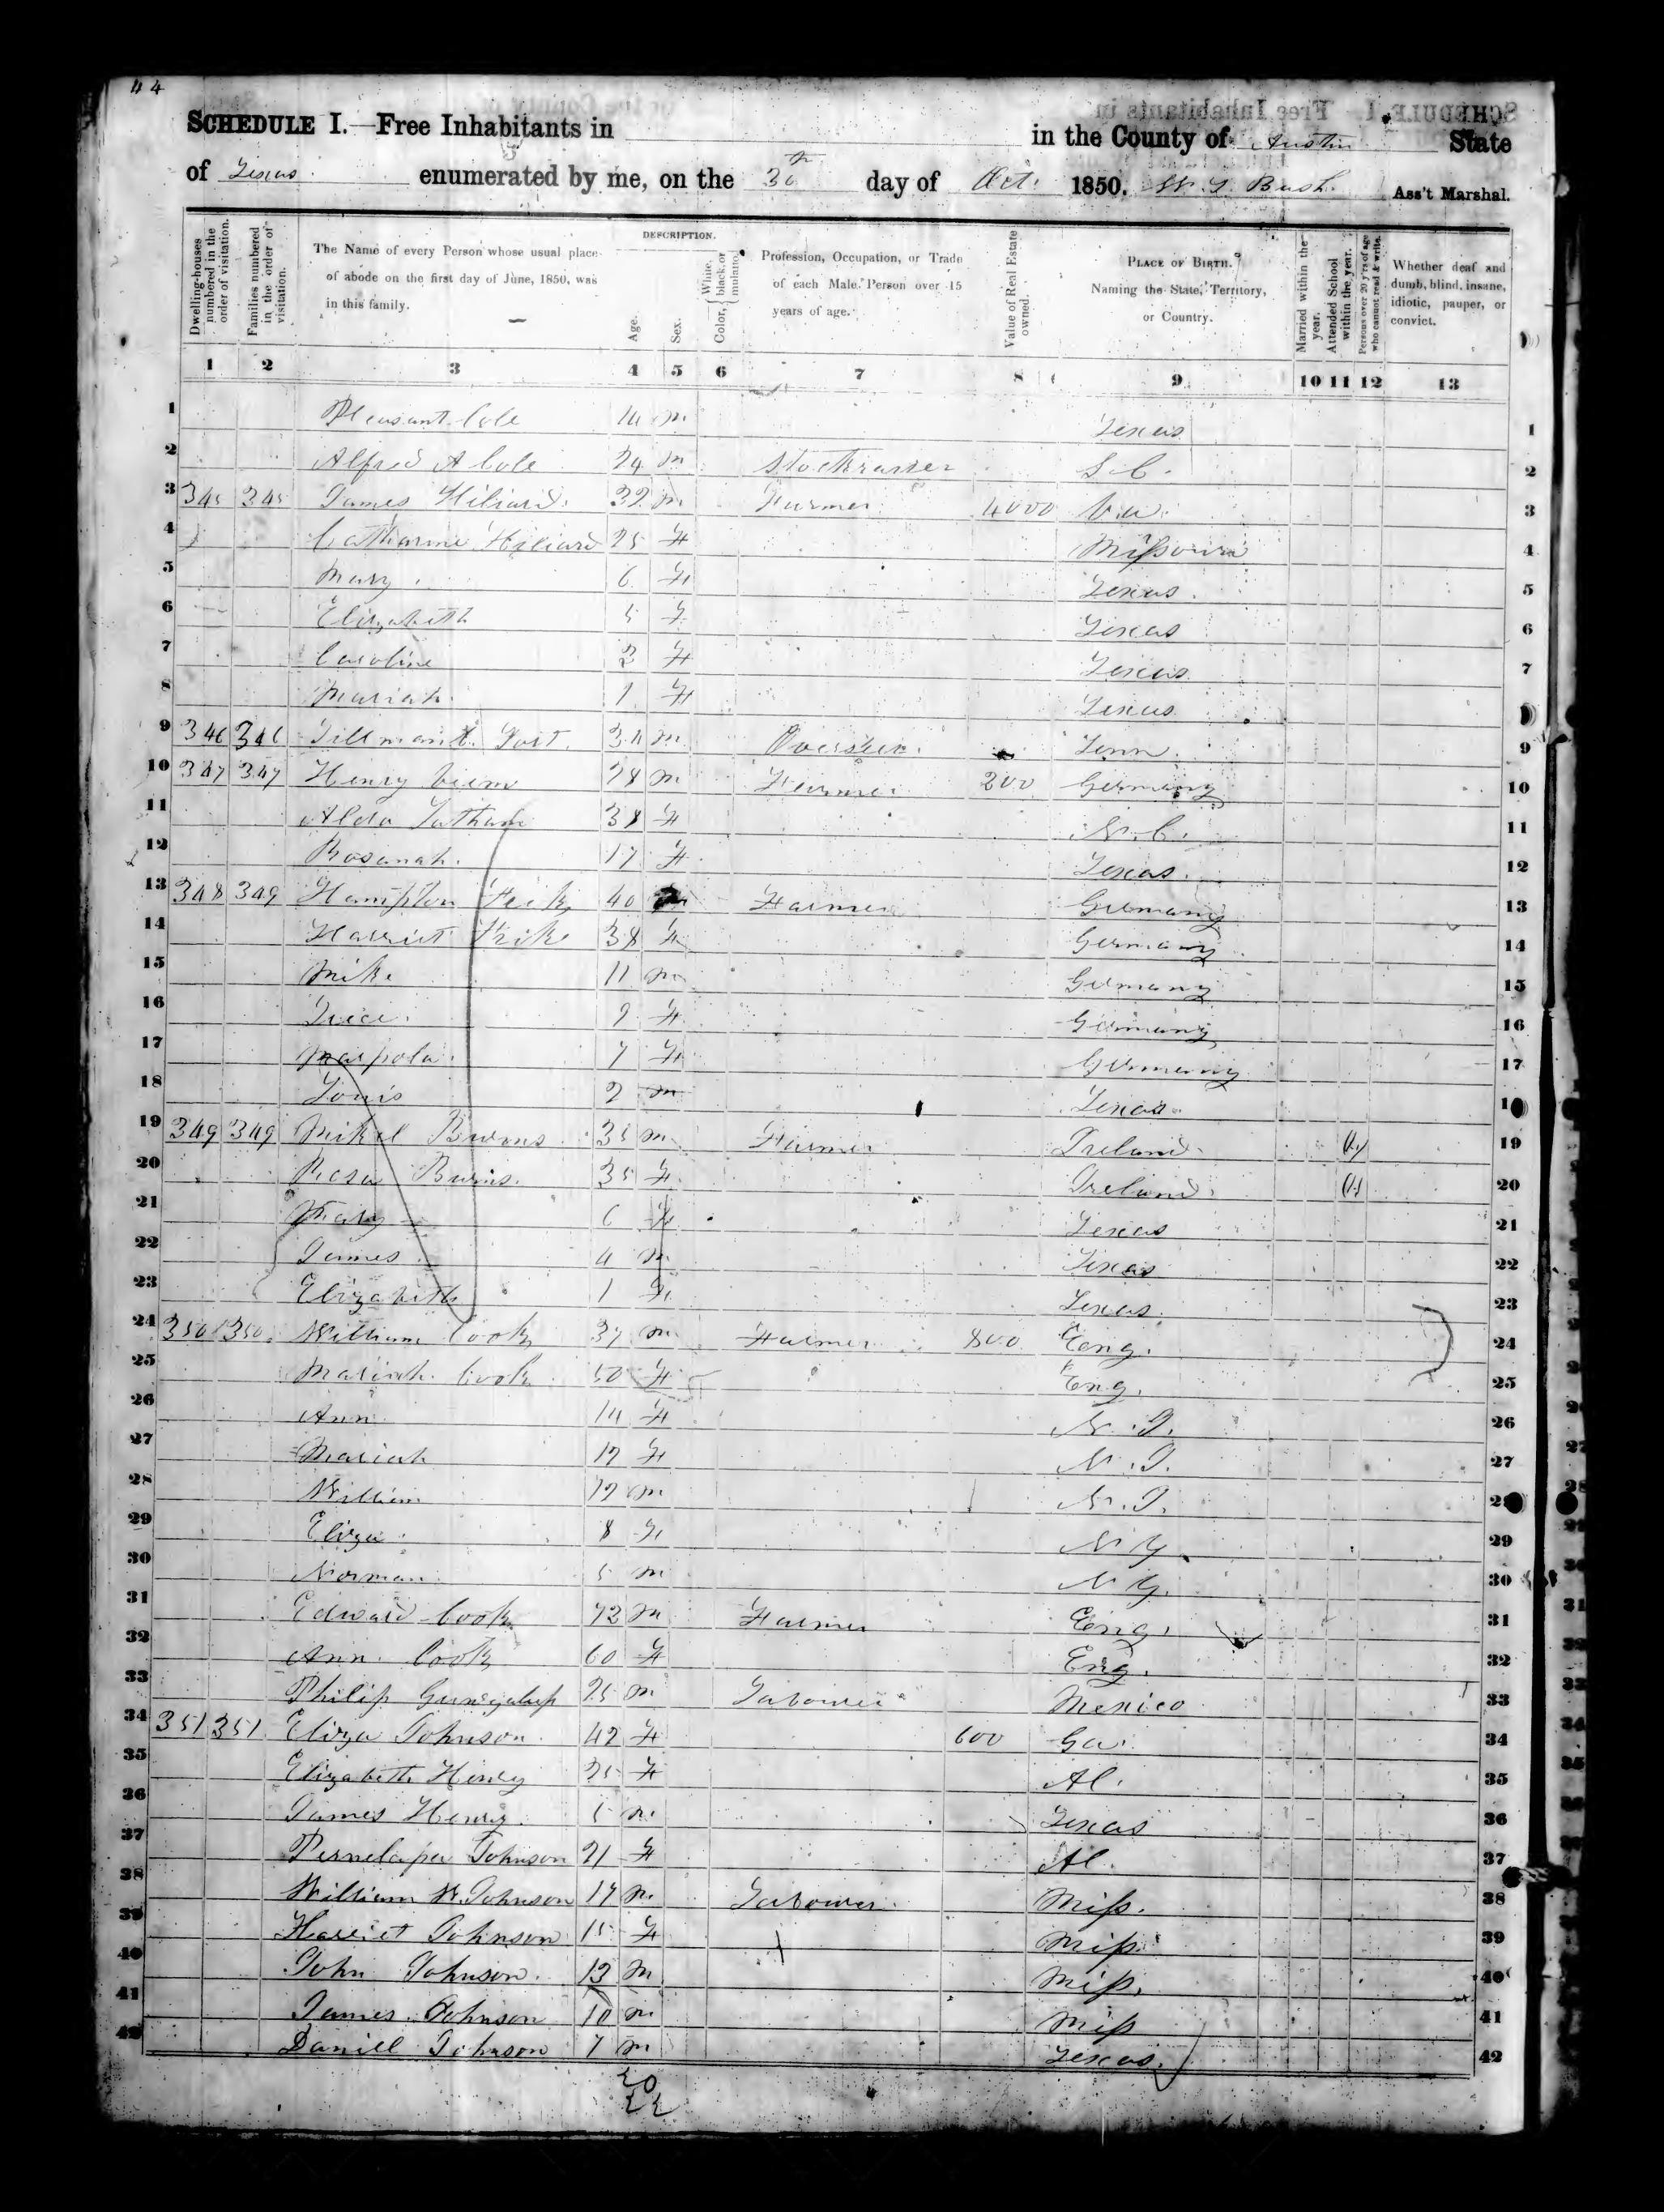 44
SCHEDULE I.—Free Inhabitants in in the County of Austin State
of Texas enumerated by me, on the 30th day of Oct. 1850. Bush. Ass't Marshal.
Dwelling-houses numbered in the order of visitation.
Families numbered in the order of visitation.
The Name of every Person whose usual place of abode on the first day of June, 1850, was in this family.
DESCRIPTION.
Age.
Sex.
Color, { White, black, or mulatto.
Profession, Occupation, or Trade of each Male Person over 15 years of age.
Value of Real Estate owned.
PLACE OF BIRTH. Naming the State, Territory, or Country.
Married within the year.
Attended School within the year.
Persons over 20 y'rs of age who cannot read & write.
Whether deaf and dumb, blind, insane, idiotic, pauper, or convict.
1 2 3 4 5 6 7 8 9 10 11 12 13
1 Pleasant Cole 14 m Texas 1
2 Alfred A Cole 24 m Stockraiser S.C. 2
3 345 345 James Hiliard 32 m Farmer 4000 Va. 3
4 Catharine Hiliard 25 F Missouri 4
5 Mary 6 F Texas 5
6 Elizabeth 5 F Texas 6
7 Caroline 2 F Texas 7
8 Mariah 1 F Texas
9 346 346 m Overseer Tenn 9
10 347 347 Henry 28 m Farmer 200 Germany 10
11 38 F N.C. 11
12 Rosanah 17 F Texas 12
13 348 349 Hampton 40 Farmer Germany 13
14 Harriet 38 F Germany 14
15 Mike 11 m Germany 15
16 9 F Germany 16
17 7 F Germany 17
18 Louis 2 m Texas
19 349 349 Mikel 35 m Farmer Ireland 19
20 Rosa Burns 35 F Ireland 20
21 Mary 6 F Texas 21
22 James 4 m Texas 22
23 Elizabeth 1 F Texas 23
24 350 350 William Cook 37 m Farmer 800 Eng. 24
25 Mariah Cook F Eng. 25
26 Ann 14 F 26
27 Mariah 12 F 27
28 William 12 m
29 Eliza 8 F N Y. 29
30 Norman 5 m N Y. 30
31 Edward Cook 72 m Farmer Eng. 31
32 Ann Cook 60 F Eng. 32
33 Philip 25 m Labourer Mexico 33
34 351 351 Eliza Johnson 42 F 600 Ga. 34
35 Elizabeth Henry 25 F Al. 35
36 James Henry 5 m Texas 36
37 Johnson 21 F Al. 37
38 William W. Johnson 17 m Labourer Miss. 38
39 Harriet Johnson 15 F Miss. 39
40 John Johnson 13 m Miss. 40
41 James Johnson 10 m Miss 41
42 Daniell Johnson 7 m Texas. 42
20
22